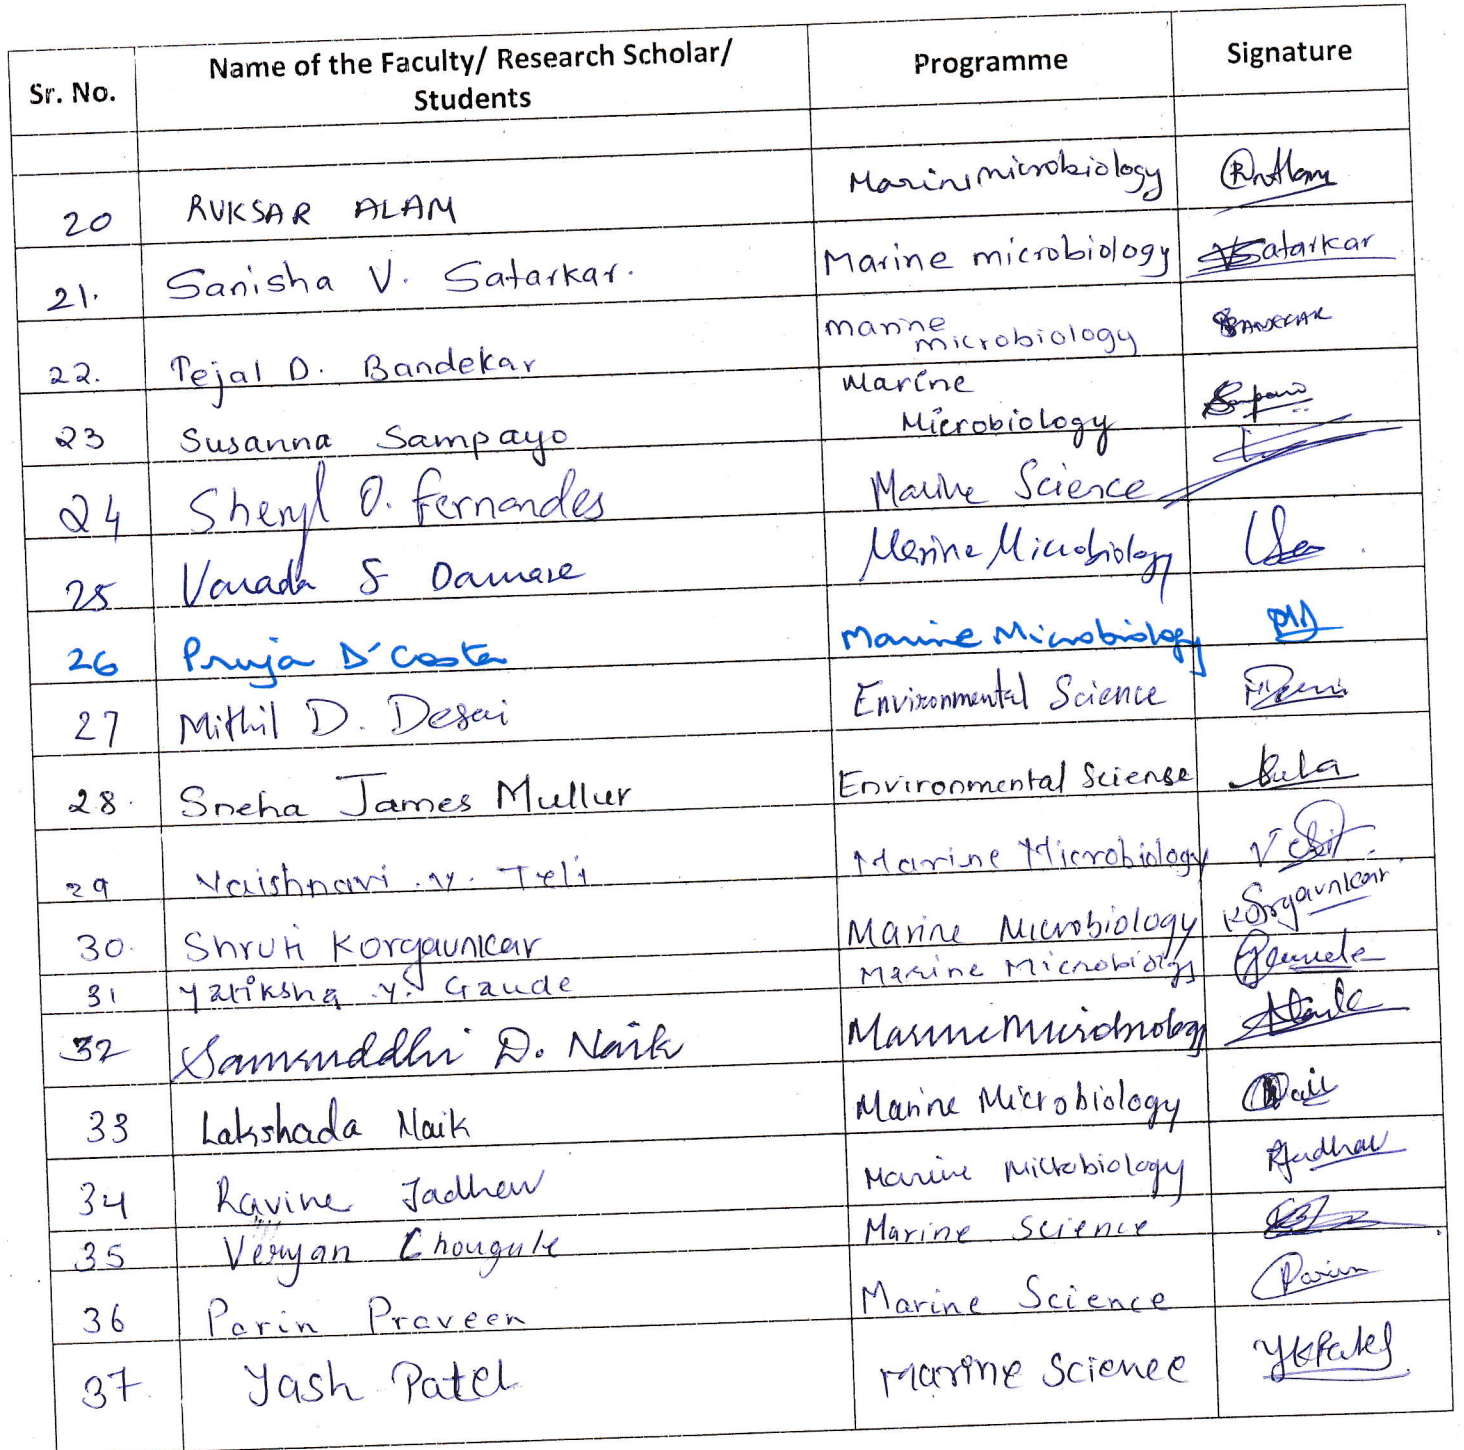 Sr. No. Name of the Faculty/ Research Scholar/ Students Programme Signature
20 RUKSAR ALAM Marine microbiology
21. Sanisha V. Satarkar. Marine microbiology Satarkar
22. Tejal D. Bandekar marine microbiology BANDEKAR
23 Susanna Sampayo Marine Microbiology
24 Sheryl O. Fernandes Marine Science
25 Varada S Damare Marine Microbiology
26 Priya D'Costa Marine Microbiology
27 Mithil D. Desai Environmental Science
28. Sneha James Mullur Environmental Sciense
29 Vaishnavi .V. Teli Marine Microbiology
30. Shruti Korgaunkar Marine Microbiology Korgaunkar
31 Yatiksha .Y. Gaude Marine Microbiology Gaude
32 Samruddhi D. Naik Marine Microbiology
33 Lakshada Naik Marine Microbiology Naik
34 Ravine Jadhav Marine Microbiology RJadhav
35 Veryan Chougule Marine Science
36 Parin Praveen Marine Science Parin
37 Yash Patel Marine Science YKPatel